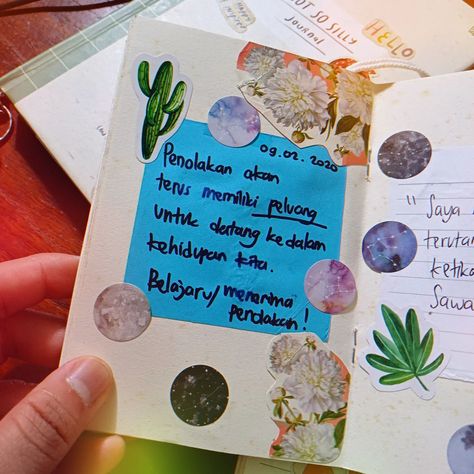 NOT SO SILLY
Journal
HELLO
09.02.2020
Penolakan akan
terus memiliki peluang
untuk datang ke dalam
kehidupan kita.
Belajarlah menerima
Penolakan!
"Saya
terutam
ketika
Sawa